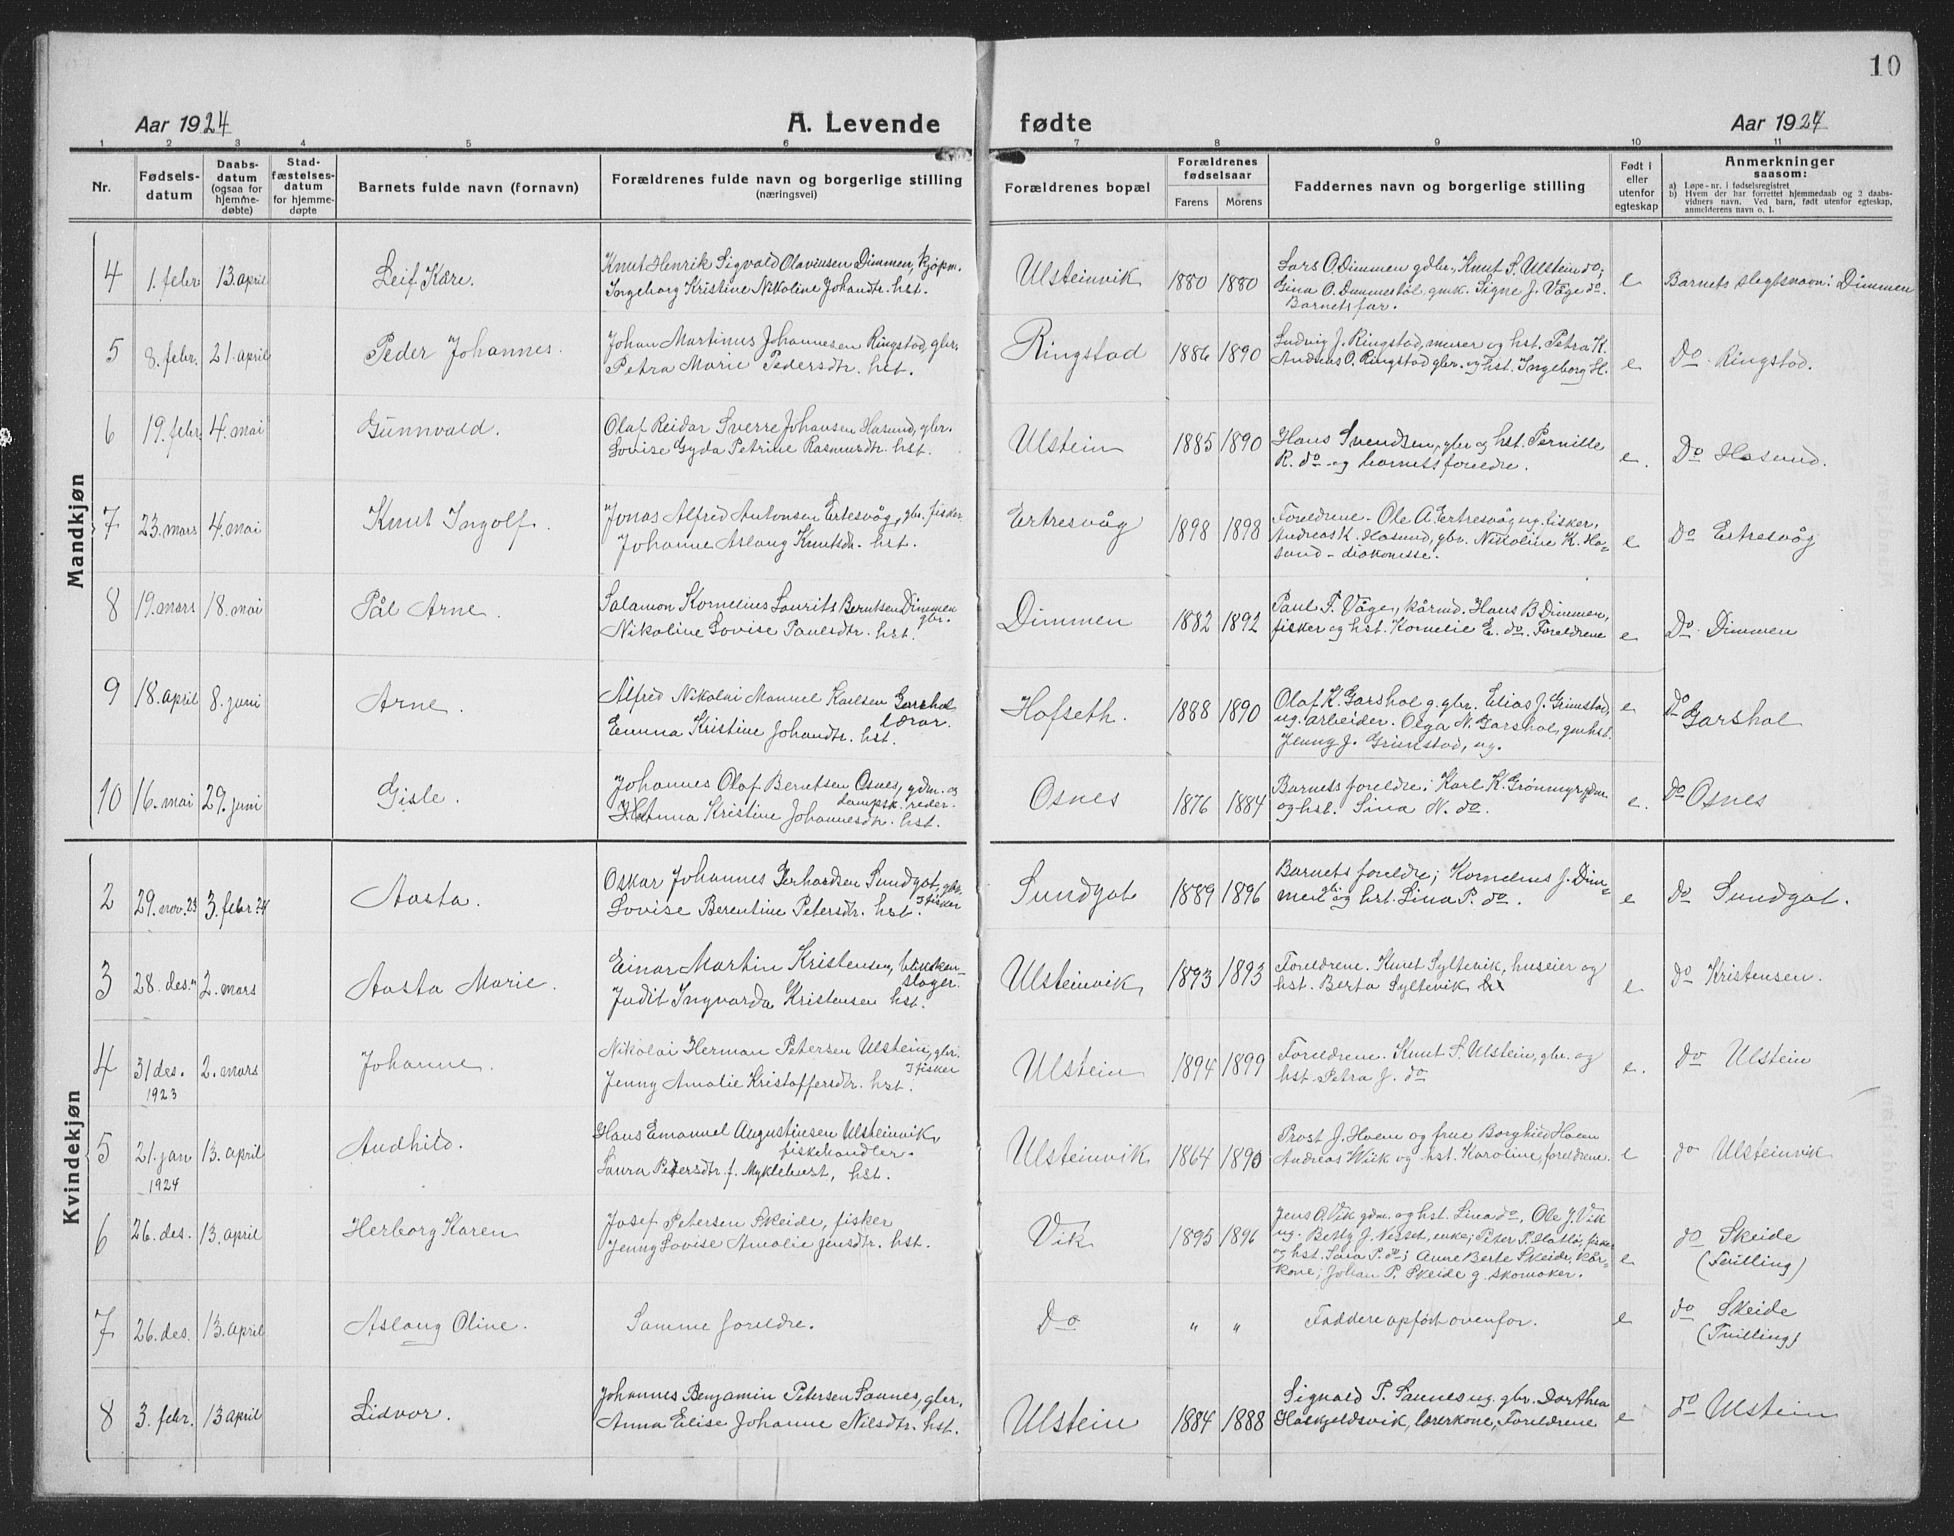 10
Aar 1924
A. Levende
fødte
Aar 1924
1 2 3 4 5 6 7 8 9 10 11
Nr.
Fødsels-
datum
Daabs-
datum
(ogsaa for
hjemme-
døbte)
Stad-
fæstelses-
datum
for hjemme-
døpte
Barnets fulde navn (fornavn)
Forældrenes fulde navn og borgerlige stilling
(næringsvei)
Forældrenes bopæl
Forældrenes
fødselsaar
Farens
Morens
Faddernes navn og borgerlige stilling
Født i
eller
utenfor
egteskap
Anmerkninger
saasom:
a) Løpe-nr. i fødselsregistret
b) Hvem der har forrettet hjemmedaab og 2 daabs-
vidners navn. Ved barn, født utenfor egteskap,
anmelderens navn o. l.
Mandkjøn
4 1. febr 13. april Leif Kåre.
Knut Henrik Sigvald Olavinsen Dimmen, kjøpm.
Ingeborg Kristine Nikoline Johandtr. hst.
Ulsteinvik 1880 1880
Lars O. Dimmen gdbr., Knut S. Ulstein do;
Gina O. Dimmestøl, gmk. Signe J. Våge do.
Barnets far.
e Barnets slegtsnavn: Dimmen
5 8. febr. 21. april Peder Johannes.
Johan Martinus Johannesen Ringstad, gbr.
Petra Marie Pedersdtr. hst.
Ringstad 1886 1890
Ludvig J. Ringstad, murer og hst. Petra K.
Andreas O. Ringstad gbr. og hst. Ingeborg H.
e Do Ringstad.
6 19. febr. 4. mai Gunnvald.
Olaf Reidar Sverre Johansen Hasund, gbr.
Lovise Gyda Petrine Rasmusdtr. hst.
Ulstein 1885 1890
Hans Svendsen, gbr og hst. Pernille
R. do og barnets foreldre.
e. Do Hasund.
7 23. mars 4. mai Knut Ingolf.
Jonas Alfred Antonsen Ertesvåg, gbr. fisker
Johanne Aslaug Knutsdtr. hst.
Ertresvåg 1898 1898
Foreldrene. Ole A. Ertresvåg ug. fisker,
Andreas K. Hasund, gbr. Nikoline K. Ha=
sund - diakonisse.
e Do Ertresvåg
8 19. mars 18. mai Pål Arne.
Salamon Kornelius Laurits Berntsen Dimmen
gbr.
Nikoline Lovise Paulsdtr. hst.
Dimmen 1882 1892
Paul F. Våge, kårmd. Hans B Dimmen,
fisker og hst. Kornelie E. do. Foreldrene
e Do Dimmen
9 18. april 8. juni Arne.
Alfred Nikolai Manuel Karlsen Garshol
lærar.
Emma Kristine Johandtr. hst.
Hofseth. 1888 1890
Olaf K. Garshol g. gbr. Elias J. Grimstad,
ug. arbeider. Olga N. Garshol, gmhst.
Jenny J. Grimstad, ug.
e Do Garshol
10 16. mai 29. juni Gisle.
Johannes Olaf Berntsen Osnes, gdm. og
dampsk. reder.
Anna Kristine Johannesdtr. hst.
Osnes 1876 1884
Barnets foreldre; Karl K. Grønmyr gdm
og hst. Lina N. do.
e. Do Osnes
Kvindekjøn
2 29. nov. 23 3. febr 24 Aasta.
Oskar Johannes Gerhardsen Sundgot, gbr.
I fisker
Lovise Berentine Petersdtr. hst.
Sundgot 1889 1896
Barnets foreldre; Kornelius J. Dim=
men gbr og hst. Lina P. do.
e do Sundgot.
3 28. des. " 2. mars Aasta Marie.
Einar Martin Kristensen, blikken-
slager.
Judit Ingvarda Kristensen hst.
Ulsteinvik 1893 1893
Foreldrene. Knut Syltevik, huseier og
hst. Berta Syltevik
e do Kristensen.
4 31 des. 2. mars Johanne.
1923
Nikolai Herman Petersen Ulstein, gbr.
I fisker
Jenny Amalie Kristoffersdtr. hst.
Ulstein 1894 1899
Foreldrene. Knut S. Ulstein, gbr. og
hst. Petra J. do
e. do Ulstein
5 21. jan 13. april Audhild.
1924
Hans Emanuel Augustinsen Ulsteinvik,
fiskehandler.
Laura Pedersdtr. f. Myklebust, hst.
Ulsteinvik 1864 1890
Prost J. Hoem og frue Borghild Hoem
Andreas Wiik og hst. Karoline, foreldrene.
e do Ulsteinvik
6 26. des. 13. april Herborg Karen
Josef Petersen Skeide, fisker
Jenny Lovise Amalie Jensdtr. hst.
Vik 1895 1896
Jens A. Vik gdm. og hst. Lina do. Ole J. Vik
ug. Betty J. Nesset, enke; Peter P. Hatlø, fisker
og hst. Sara P. do; Anne Berte Skeide, kår-
kone; Johan P. Skeide g. skomaker.
e do Skeide
(Tvilling)
7 26. des. 13. april Aslaug Oline.
Samme foreldre.
Do " "
Faddere opført ovenfor.
e do Skeide
(Tvilling)
8 3. febr. 13 april Lidvor.
Johannes Benjamin Petersen Saunes, gbr.
Anna Elise Johanne Nilsdtr. hst.
Ulstein 1884 1888
Signald P. Saunes ug. gbr. Dorthea
Haskjeldsvik, lærerkone, Foreldrene
e do Ulstein